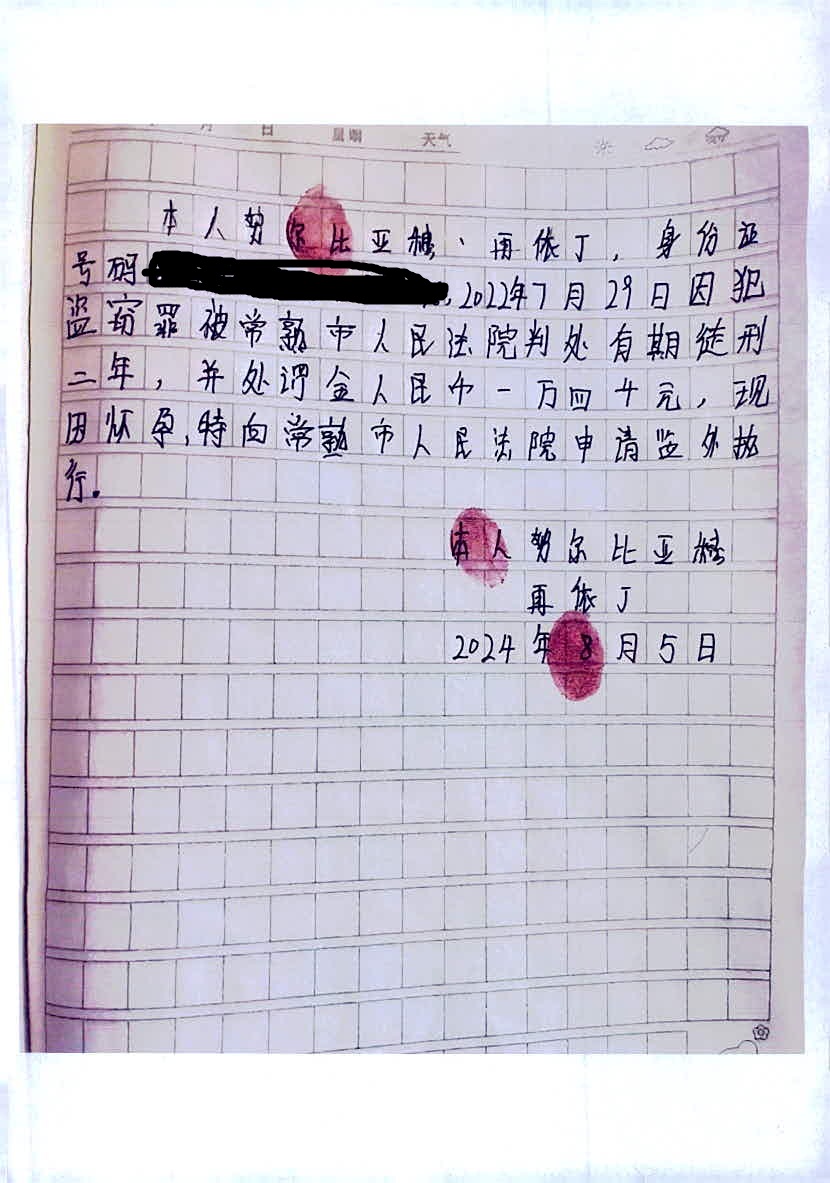 月 日 星期 天气
本人努尔比亚穆、再依丁，身份证
号码 2022年7月29日因犯
盗窃罪被常熟市人民法院判处有期徒刑
二年，并处罚金人民币一万四千元，现
因怀孕，特向常熟市人民法院申请监外执
行。
本人努尔比亚穆
再依丁
2024年8月5日